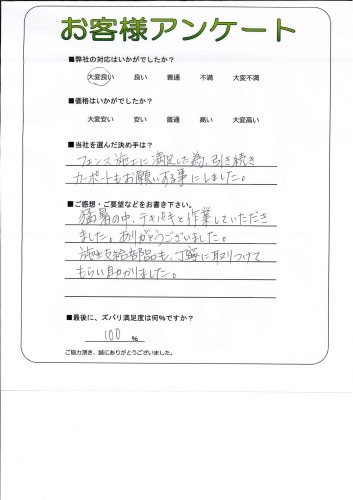 お客様アンケート
■弊社の対応はいかがでしたか?
大変良い 良い 普通 不満 大変不満
■価格はいかがでしたか?
大変安い 安い 普通 高い 大変高い
■当社を選んだ決め手は?
フェンス施工に満足した為、引き続き
カーポートもお願いする事にしました。
■ご感想・ご要望などをお書き下さい。
猛暑の中、テキパキと作業していただき
ました。ありがとうございました。
施主支給部品も、丁寧に取りつけて
もらい助かりました。
■最後に、ズバリ満足度は何%ですか?
100 %
ご協力頂き、誠にありがとうございました。